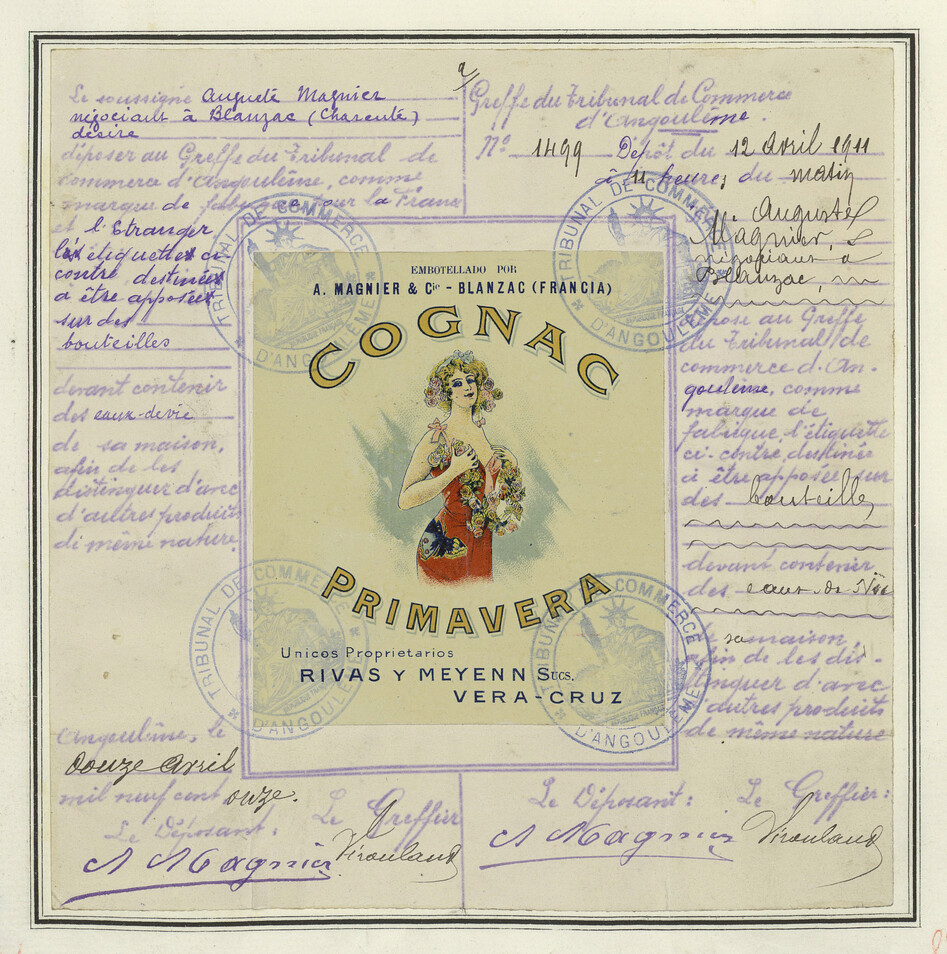 Le soussigné Auguste Magnier
négociant à Blanzac (Charente)
désire
déposer au Greffe du Tribunal de
commerce d'Angoulême, comme
marque de fabrique pour la France
et l'Etranger
les étiquettes ci
contre destinées
à être apposées
sur des
bouteilles
devant contenir
des eaux-de-vie
de sa maison,
afin de les
distinguer d'avec
d'autres produits
de même nature.
Angoulême, le
douze avril
mil neuf cent onze.
Le Déposant: Le Greffier
A Magnier
Greffe du Tribunal de Commerce
d'Angoulême.
N° 1499 Dépôt du 12 Avril 1911
à 11 heures du matin
Mr Auguste
Magnier,
négociant à
Blanzac,
dépose au Greffe
du Tribunal de
commerce d'An-
goulême, comme
marque de
fabrique, l'étiquette
ci-contre, destinée
à être apposée sur
des bouteilles
devant contenir
des eaux-de-Vie
sa maison,
afin de les dis-
tinguer d'avec
d'autres produits
de même nature
Le Déposant: Le Greffier:
A Magnier
EMBOTELLADO POR
A. MAGNIER & Cie - BLANZAC (FRANCIA)
COGNAC
PRIMAVERA
Unicos Proprietarios
RIVAS Y MEYENN Sucs.
VERA-CRUZ
TRIBUNAL DE COMMERCE
D'ANGOULÊME
TRIBUNAL DE COMMERCE
D'ANGOULÊME
TRIBUNAL DE COMMERCE
D'ANGOULÊME
TRIBUNAL DE COMMERCE
D'ANGOULÊME